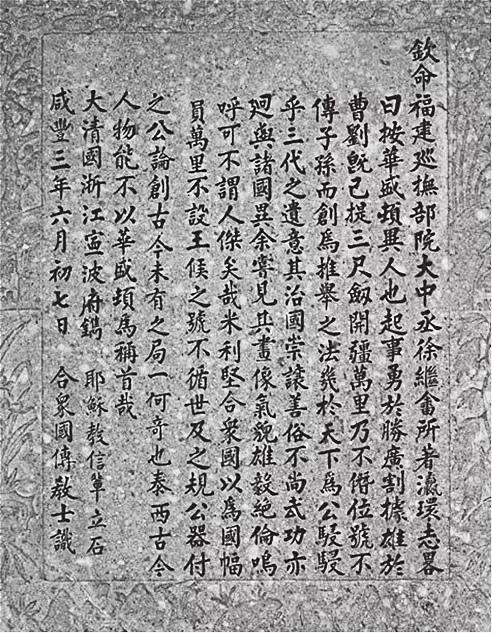 欽命福建巡撫部院大中丞徐繼畬所著瀛環志畧
曰按華盛頓異人也起事勇於勝廣割據雄於
曹劉旣已提三尺劒開疆萬里乃不僭位號不
傳子孫而創爲推舉之法幾於天下爲公駸駸
乎三代之遺意其治國崇讓善俗不尚武功亦
廻與諸國異余嘗見其畫像氣貌雄毅絕倫嗚
呼可不謂人傑矣哉米利堅合衆國以爲國幅
員萬里不設王侯之號不循世及之規公器付
之公論創古今未有之局一何奇也泰西古今
人物能不以華盛頓爲稱首哉
大清國浙江寧波府鐫 耶穌教信輩立石
咸豐三年六月初七日 合衆國傳教士識